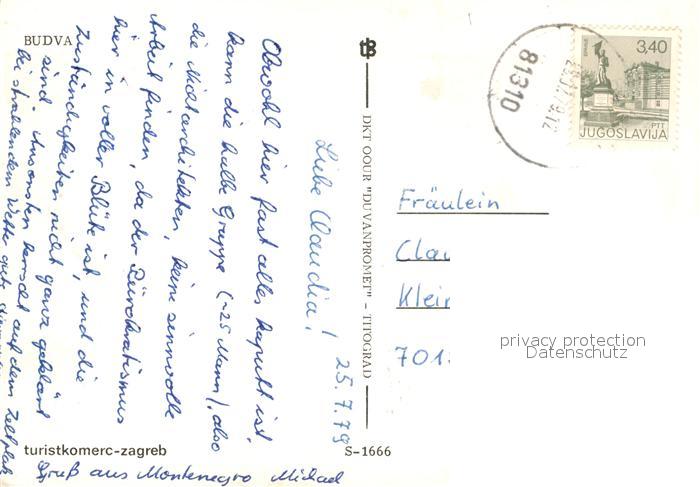 BUDVA
Liebe Claudia! 25.7.79
Obwohl hier fast alles kaputt ist,
kann die halbe Gruppe (~25 Mann), also
die Nichtarchitekten, keine sinnvolle
Arbeit finden, da der Bürokratismus
hier in voller Blüte ist, und die
Zuständigkeiten nicht ganz geklärt
sind. Ansonsten herrscht auf dem Zeltplatz
bei strahlendem Wetter gute
Gruß aus Montenegro Michael
turistkomerc-zagreb
S-1666
DKT OOUR "DUVANPROMET" - TITOGRAD
81310
3,40
PTT
JUGOSLAVIJA
Fräulein
Clau
Klein
701
privacy protection
Datenschutz